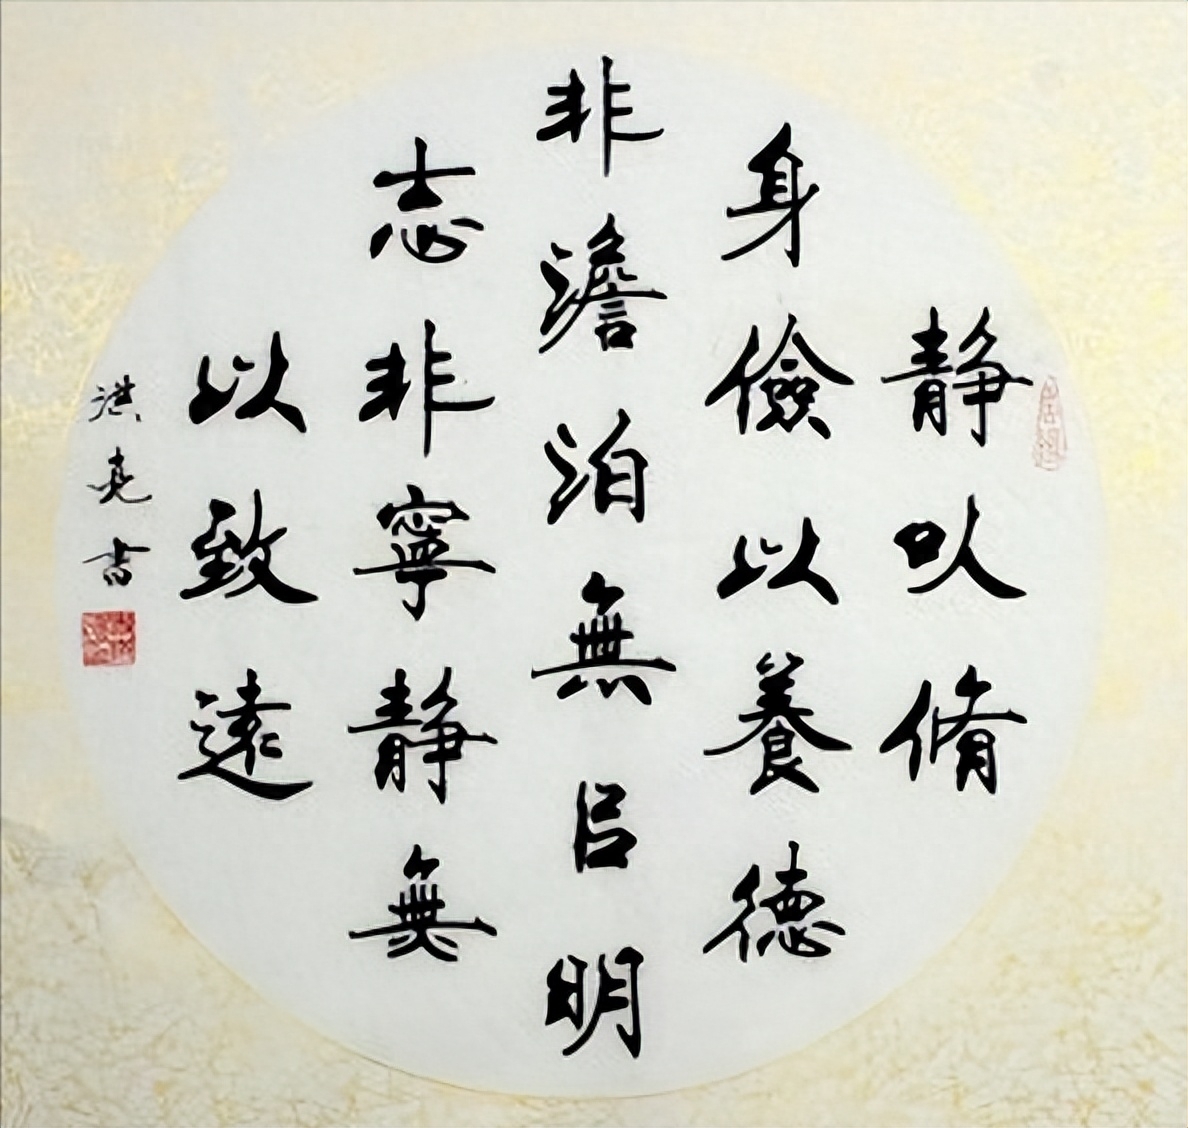 静以脩
身儉以養德
非澹泊無㠯明
志非寧靜無
以致遠
洪堯書